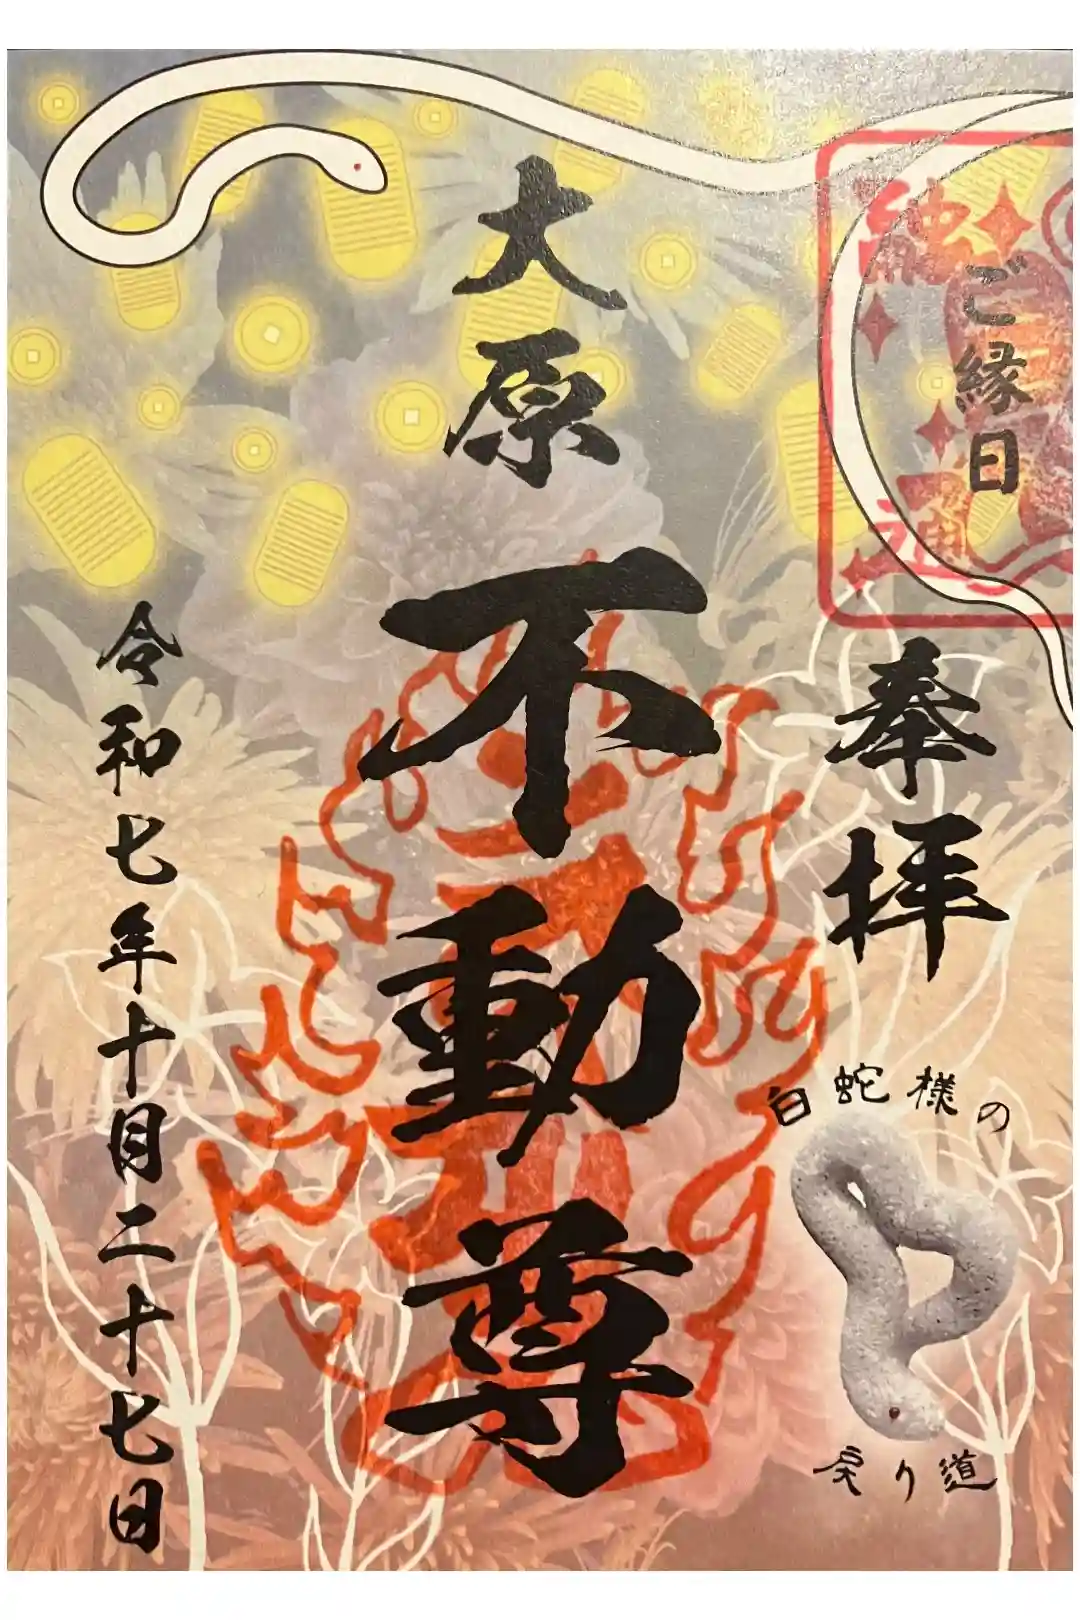 ご縁日
奉拝
大原
不動尊
白蛇様の
戻り道
令和七年十月二十七日